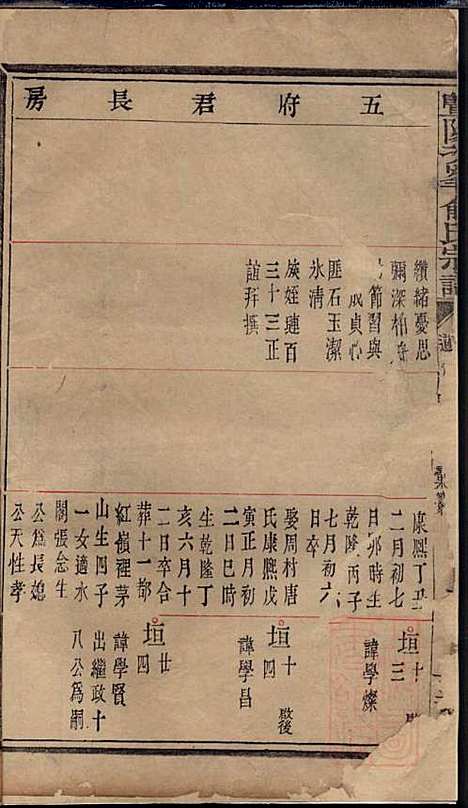 五府君長房
俞氏宗譜
纘緒憂思
彌深柏舟
節習與
成貞心
匪石玉潔
氷清
族姪璉百
三十三正
誼拜撰
康熙丁丑
二月初七
日卯時生
乾隆丙子
七月初六
日卒
娶周村唐
氏康熙戊
寅正月初
二日巳時
生乾隆丁
亥六月十
二日卒合
葬十一都
紅嶺裡茅
山生四子
一女適水
閣張念生
公爲長媳
公天性孝
垣十三
諱學燦
垣十四 啟後
諱學昌
垣廿四
諱學賢
出繼政十
八公為嗣